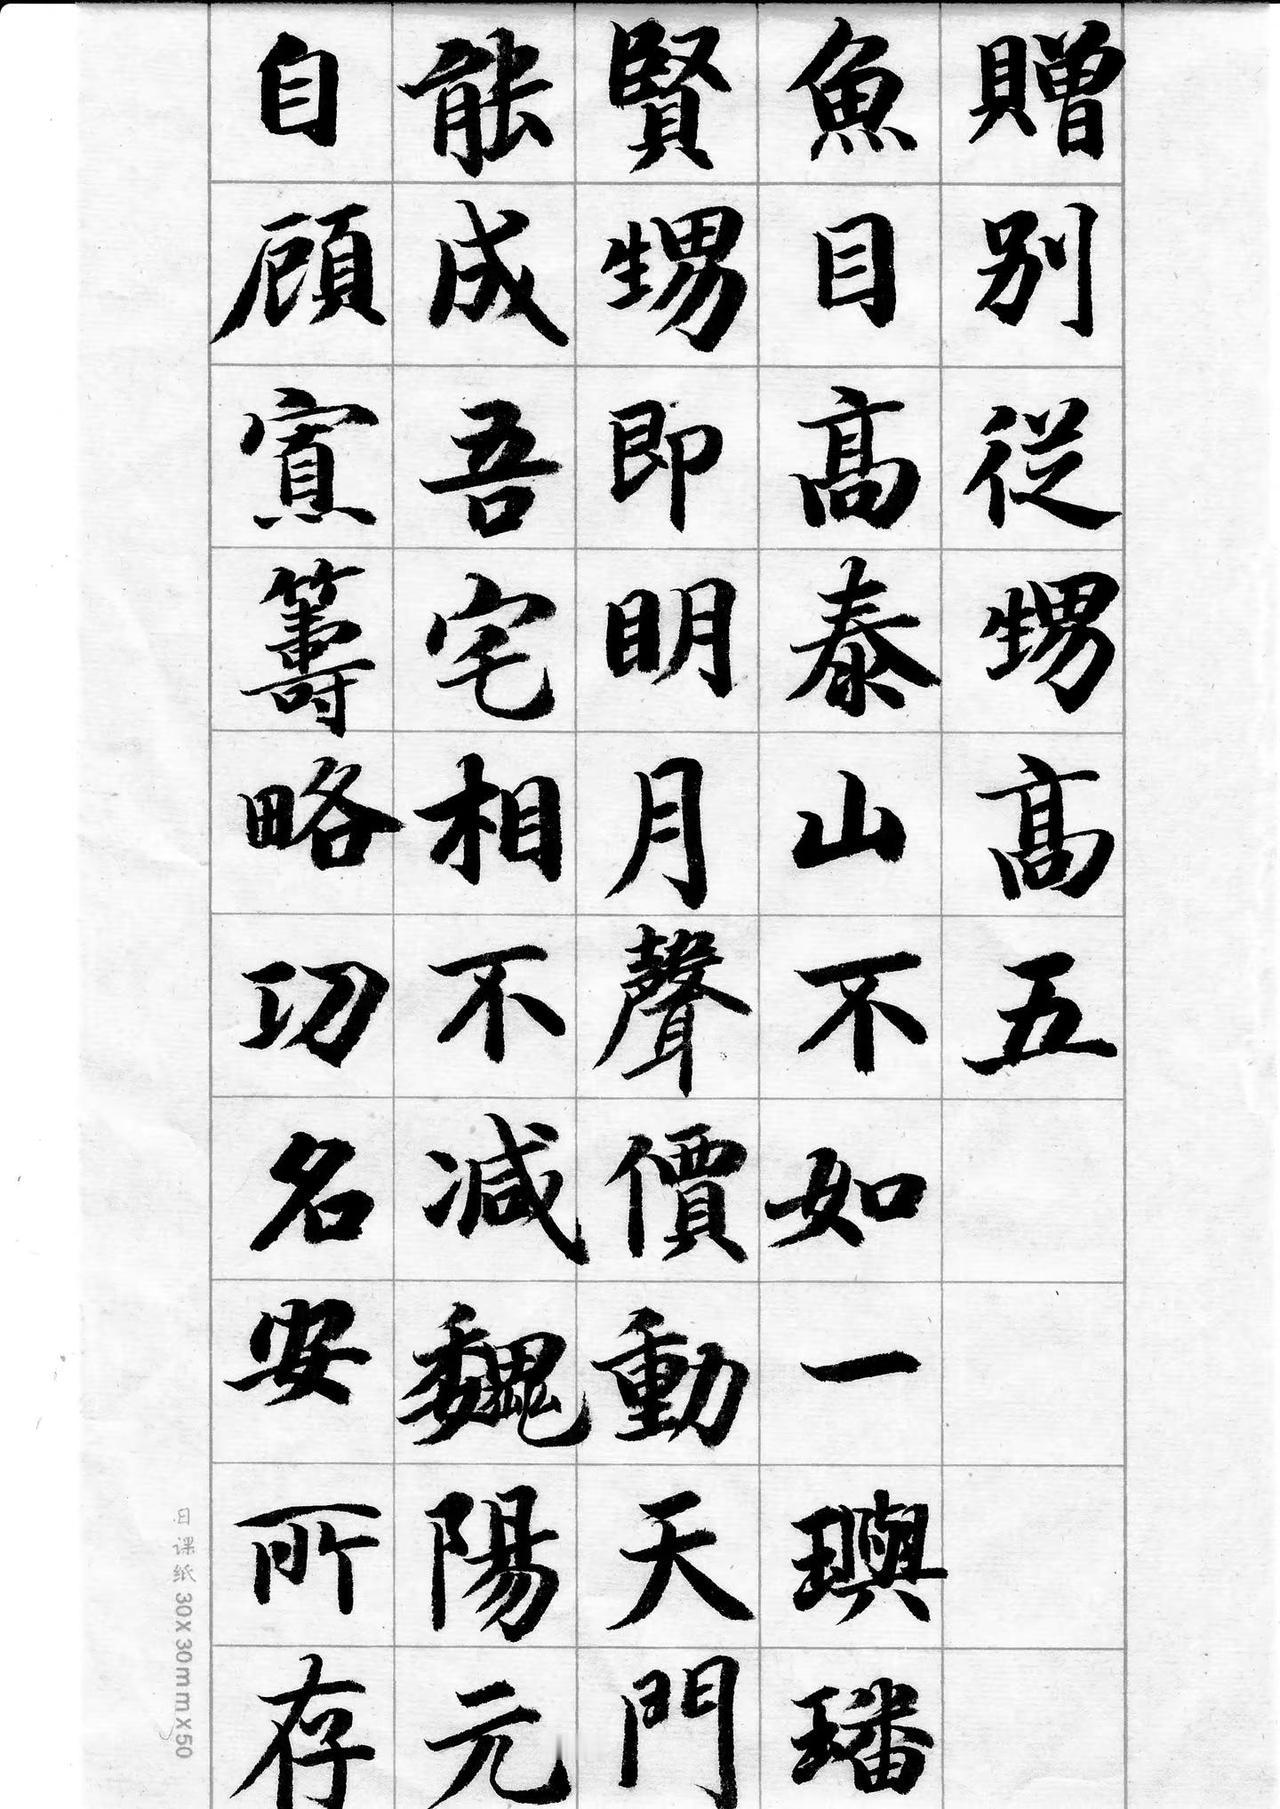 贈别從甥髙五
魚目髙泰山不如一璵璠
賢甥即明月聲價動天門
能成吾宅相不減魏陽元
自顧寡籌略功名安所存
日课纸 30x30mmx50